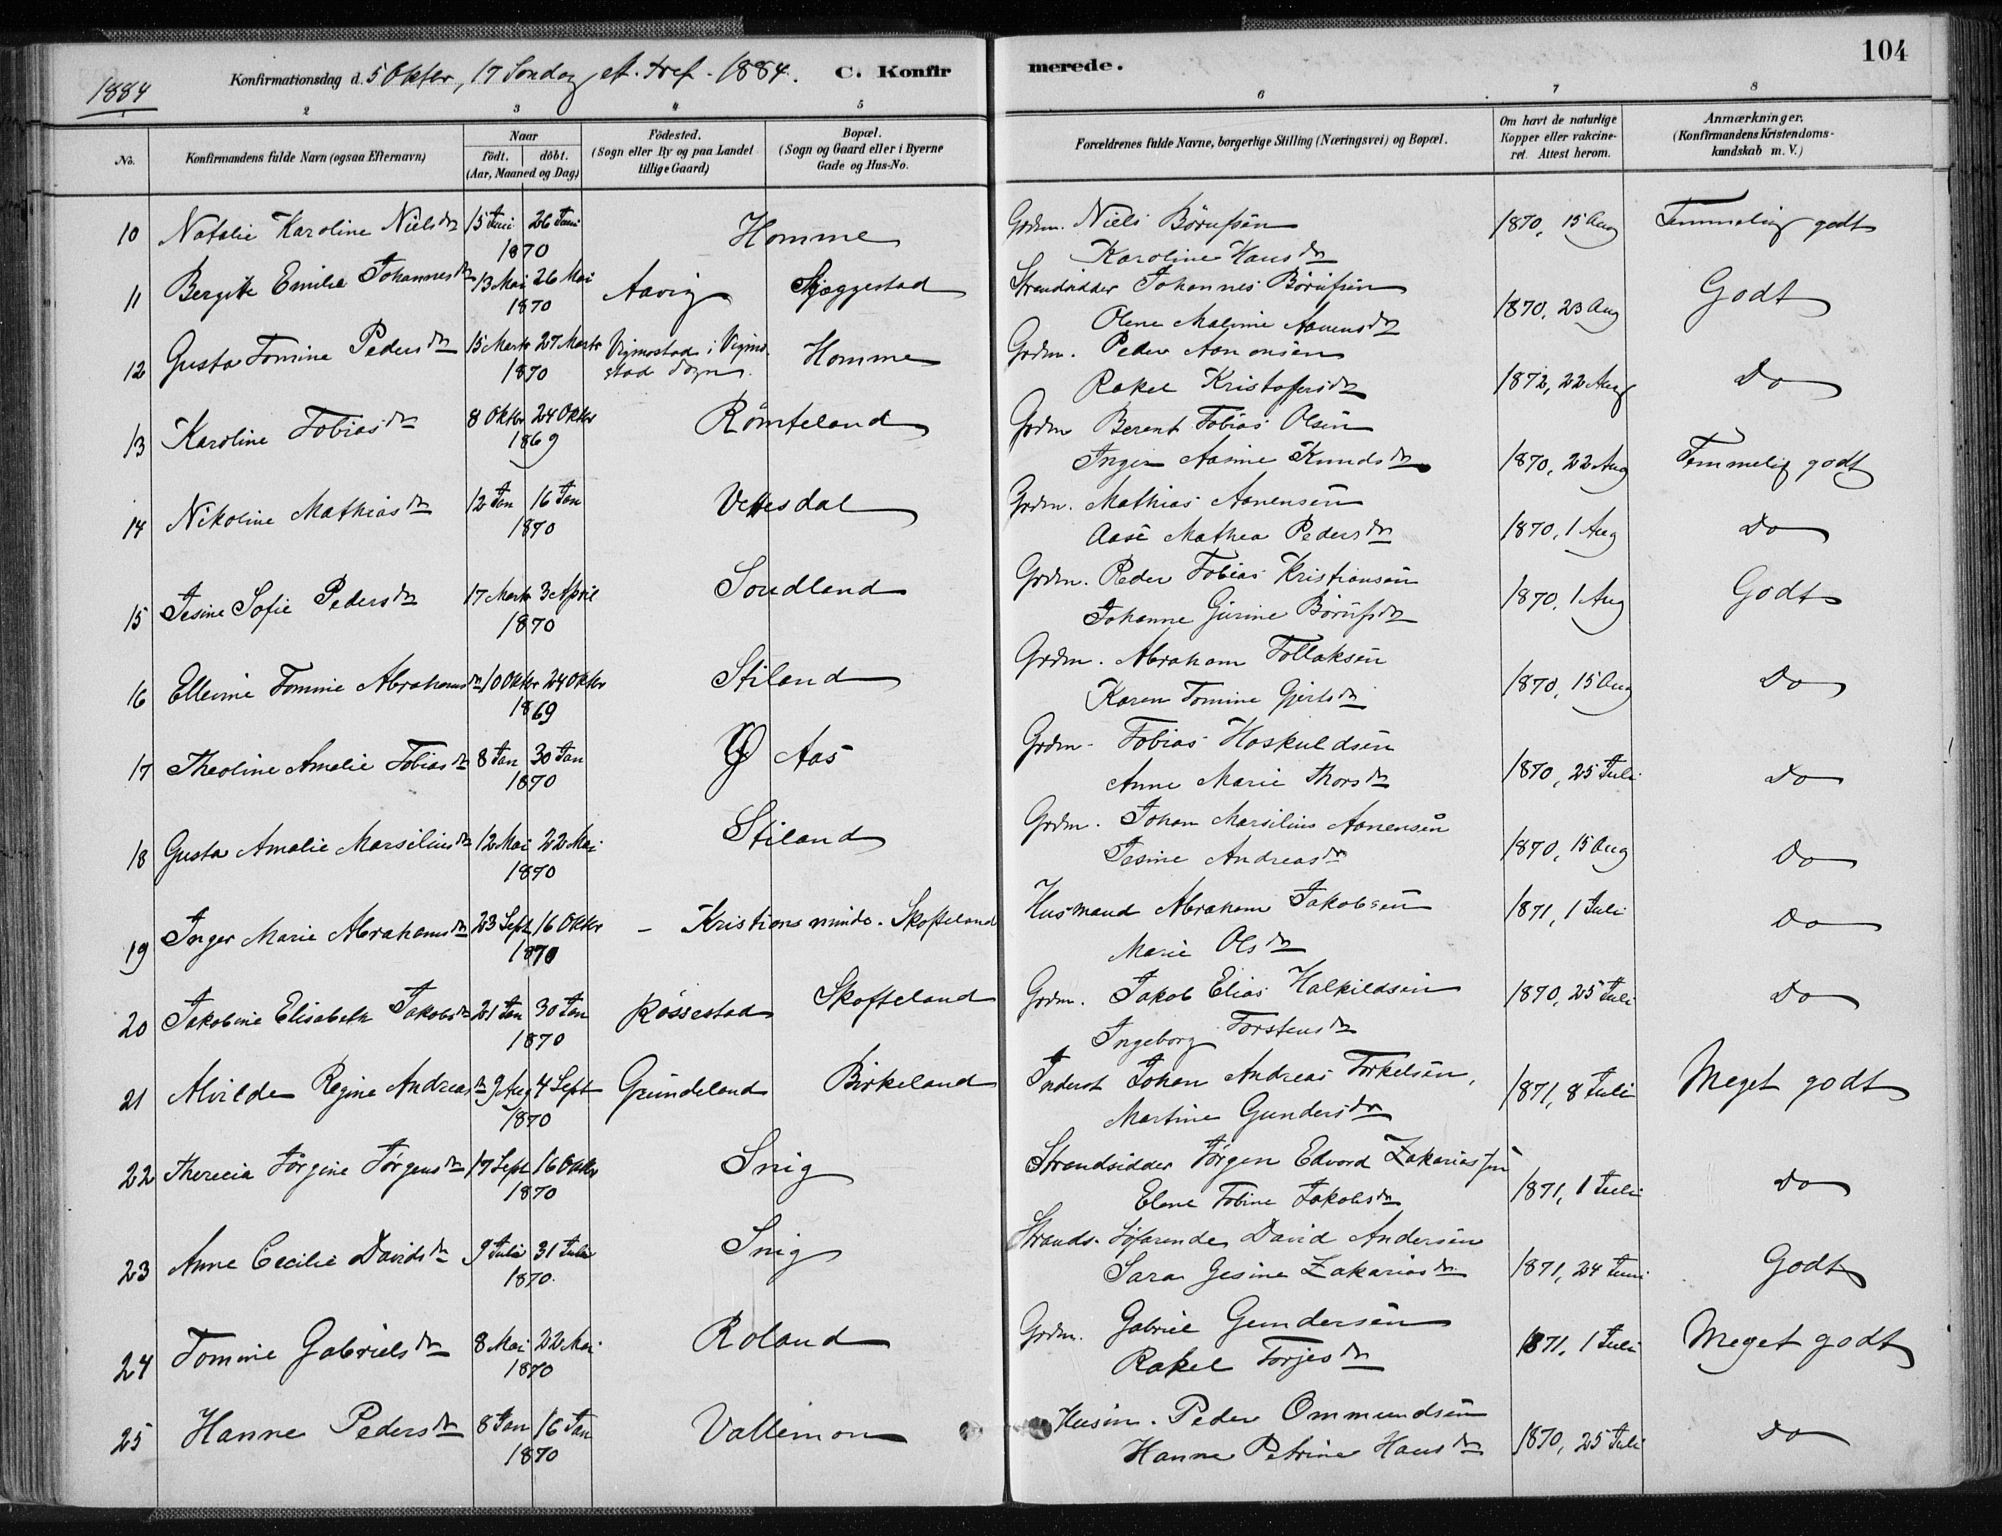 104
1884
Konfirmationsdag d. 5 Oktbr, 17 Søndag eft. Tref. 1884. C. Konfirmerede.
2 3 4 5 6 7 8
No. Konfirmandens fulde Navn (ogsaa Efternavn) Naar født. døbt. (Aar, Maaned og Dag) Fødested. (Sogn eller By og paa Landet tillige Gaard) Bopæl. (Sogn og Gaard eller i Byerne Gade og Hus-No. Forældrenes fulde Navne, borgerlige Stilling (Næringsvei) og Bopæl. Om havt de naturlige Kopper eller vakcineret. Attest herom. Anmærkninger. (Konfirmandens Kristendomskundskab m. V.)
10 Natalie Karoline Nielsdr 15 Juni 26 Juni 1870 Homme Grdm. Niels Børufsen 1870, 15 Aug Temmelig godt
Karoline Hansdr
11 Bergitte Emilie Johannesdr 13 Mai 26 Mai 1870 Aavig Skjeggestad Strandsidder Johannes Børufsen 1870, 23 Aug Godt
Olene Malinie Aanensdr
12 Gusta Tomine Pedersdr 15 Marts 27 Marts 1870 Vigmostad i Vigmostad Sogn Homme Grdm. Peder Aanonsen 1872, 22 Aug Do
Rakel Kristofersdr
13 Karoline Tobiasdr 8 Oktbr 24 Oktbr 1869 Rømteland Grdm Berent Tobias Olsen 1870, 22 Aug Temmelig godt
Inger Aasine Knudsdr
14 Nikoline Mathiasdr 12 Jan 16 Jan 1870 Vettesdal Grdm. Mathias Aanensen 1870, 1 Aug Do
Aase Mathea Pedersdr
15 Jesine Sofie Pedersdr 17 Marts 3 April 1870 Sondland Grdm. Peder Tobias Kristiansen 1870, 1 Aug Godt
Johanne Gurine Børufsdr
16 Ellevine Tomine Abrahamsdr 10 Oktbr 24 Oktbr 1869 Stiland Grdm. Abraham Tollaksen 1870, 15 Aug Do
Karen Tomine Gjertsdr
17 Theoline Amalie Tobiasdr 8 Jan 30 Jan 1870 Ø Aas Grdm. Tobias Hoskuldsen 1870, 25 Juli Do
Anne Marie Thorsdr
18 Gusta Amalie Marsiliusdr 12 Mai 22 Mai 1870 Stiland Grdm. Johan Marsilius Aanensen 1870, 15 Aug Do
Jesine Andreasdr
19 Inger Marie Abrahamsdr 23 Sept 16 Oktbr 1870 – Kristiansminde. Skofteland Husmand Abraham Jakobsen 1871, 1 Juli Do
Marie Olsdr
20 Jakobine Elisabeth Jakobsdr 21 Jan 30 Jan 1870 Røssestad Skofteland Grdm. Jakob Elias Halkildsen 1870, 25 Juli Do
Ingeborg Torstensdr
21 Alvilde Regine Andreasdr 9 Aug 4 Sept 1870 Grundeland Birkeland Inderst Johan Andreas Torkelsen, 1871, 8 Juli Meget godt
Martine Gundersdr
22 Therecia Jørgine Jørgensdr 17 Sept 16 Oktbr 1870 Snig Strandsidder Jørgen Edvard Zakariassen 1871, 1 Juli Do
Elene Tobine Jakobsdr
23 Anne Cecilie Davidsdr 9 Juli 31 Juli 1870. Snig Strands. Søfarende David Andersen 1871, 24 Juni Godt
Sara Gesine Zakariasdr
24 Tomine Gabrielsdr 8 Mai 22 Mai 1870 Roland Grdm. Gabriel Gundersen 1871, 1 Juli Meget godt
Rakel Torjesdr
25 Hanne Pedersdr 8 Jan 16 Jan 1870 Vallemon Husm. Peder Ommundsen 1870, 25 Juli Do
Hanne Petrine Hansdr